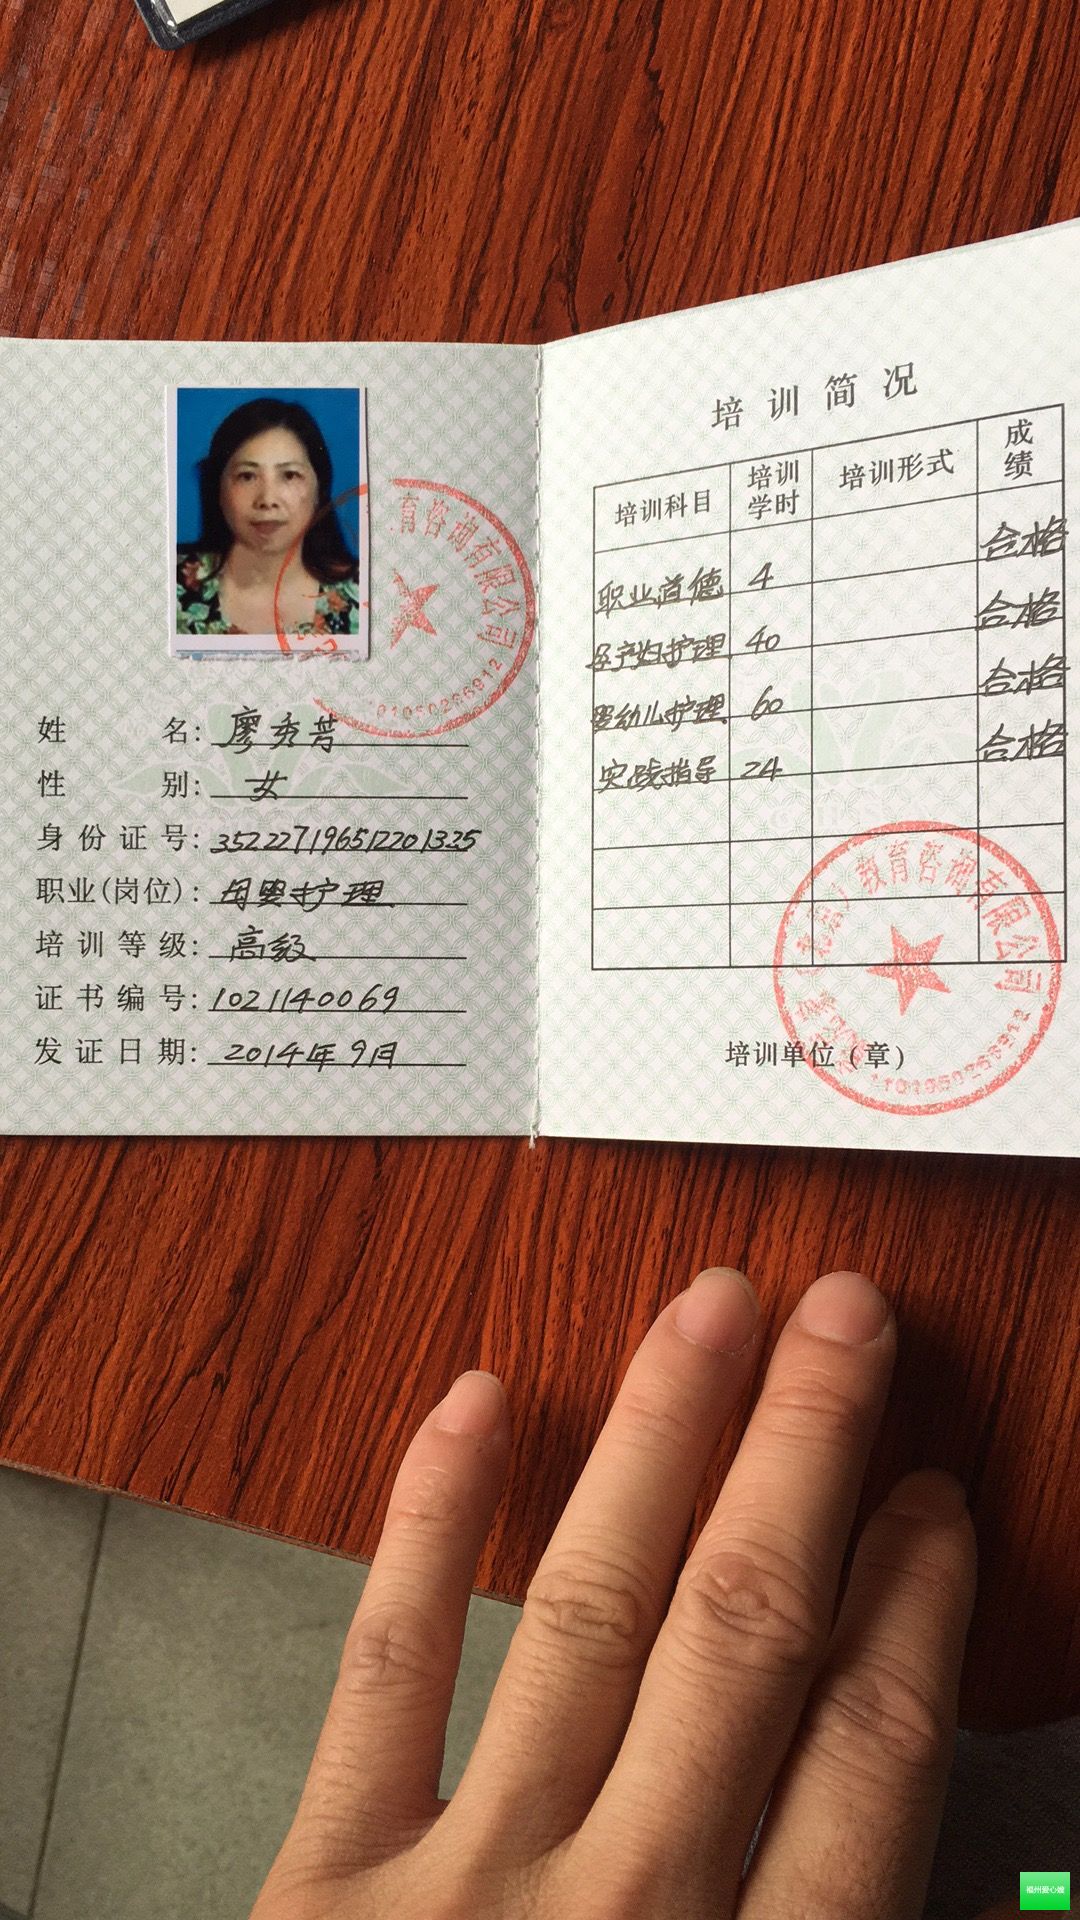 姓名：廖秀芳
性别：女
身份证号：352227196512201325
职业(岗位)：母婴护理
培训等级：高级
证书编号：1021140069
发证日期：2014年9月
育咨询有限公司
培训简况
培训科目 培训学时 培训形式 成绩
职业道德 4 合格
孕产妇护理 40 合格
婴幼儿护理 60 合格
实践指导 24 合格
教育咨询有限公司
培训单位(章)
福州爱心嫂